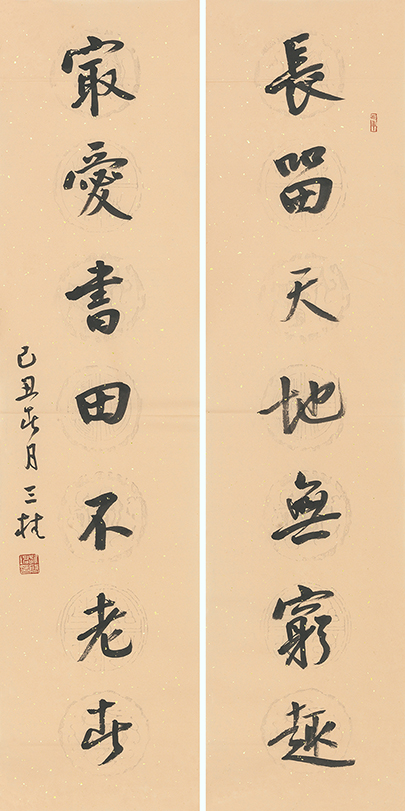 長留天地無窮趣
寂愛書田不老春
己丑春月三桂